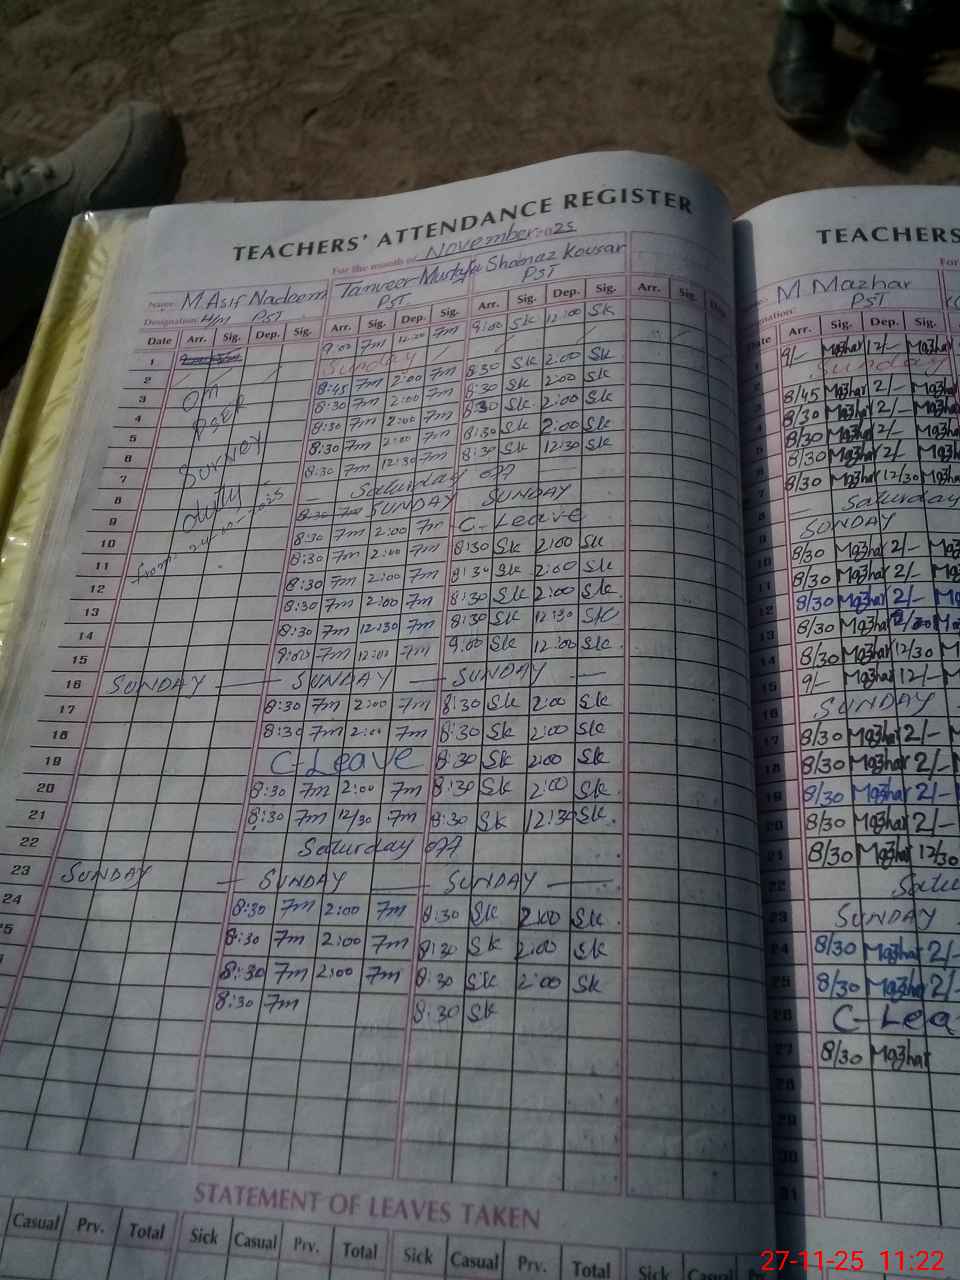 TEACHERS' ATTENDANCE REGISTER
For the month of November-025
Name: M.Asif Nadeem Tanveer Mustafa Shamaz Kousar
Designation: H/m PST PST PST
Date Arr. Sig. Dep. Sig. Arr. Sig. Dep. Sig. Arr. Sig. Dep. Sig. Arr. Sig. Date
1 9:00 7m 12:00 7m 9:00 Sk 12:00 Sk
2 Sunday
3 on 8:45 7m 2:00 7m 8:30 Sk 2:00 Sk
4 PSER 8:30 7m 2:00 7m 8:30 Sk 2:00 Sk
5 8:30 7m 2:00 7m 8:30 Sk 2:00 Sk
6 Survey 8:30 7m 2:00 7m 8:30 Sk 2:00 Sk
7 8:30 7m 12:30 7m 8:30 Sk 12:30 Sk
8 duty Saturday off
9 SUNDAY SUNDAY
10 from 8:30 7m 2:00 7m C-Leave
11 8:30 7m 2:00 7m 8:30 Sk 2:00 Sk
12 8:30 7m 2:00 7m 8:30 Sk 2:00 Sk
13 8:30 7m 2:00 7m 8:30 Sk 2:00 Sk
14 8:30 7m 12:30 7m 8:30 Sk 12:30 Sk
15 9:00 7m 12:00 7m 9:00 Sk 12:00 Sk
16 SUNDAY SUNDAY SUNDAY
17 8:30 7m 2:00 7m 8:30 Sk 2:00 Sk
18 8:30 7m 2:00 7m 8:30 Sk 2:00 Sk
19 C-Leave 8:30 Sk 2:00 Sk
20 8:30 7m 2:00 7m 8:30 Sk 2:00 Sk
21 8:30 7m 12/30 7m 8:30 Sk 12:30 Sk
22 Saturday off
23 SUNDAY SUNDAY SUNDAY
24 8:30 7m 2:00 7m 8:30 Sk 2:00 Sk
25 8:30 7m 2:00 7m 8:30 Sk 2:00 Sk
8:30 7m 2:00 7m 8:30 Sk 2:00 Sk
8:30 7m 8:30 Sk
STATEMENT OF LEAVES TAKEN
Casual Prv. Total Sick Casual Prv. Total Sick Casual Prv. Total Sick Casual Prv.
TEACHERS
For
M Mazhar
PST
Date Arr. Sig. Dep. Sig.
1 9/- Mazhar 12/- Mazhar
2 Sunday
3 8/45 Mazhar 2/- Mazhar
4 8/30 Mazhar 2/- Mazhar
5 8/30 Mazhar 2/- Mazhar
6 8/30 Mazhar 2/- Mazhar
7 8/30 Mazhar 12/30 Mazhar
8 Saturday
9 SUNDAY
10 8/30 Mazhar 2/-
11 8/30 Mazhar 2/-
12 8/30 Mazhar 2/-
13 8/30 Mazhar
14 8/30 Mazhar 12/30
15 9/- Mazhar 12/-
16 SUNDAY
17 8/30 Mazhar 2/-
18 8/30 Mazhar 2/-
19 8/30 Mazhar 2/-
20 8/30 Mazhar 2/-
21 8/30 Mazhar 12/30
22 Satu
23 SUNDAY
24 8/30 Mazhar 2/-
25 8/30 Mazhar 2/-
26 C-Lea
27 8/30 Mazhar
28
29
30
31
27-11-25 11:22